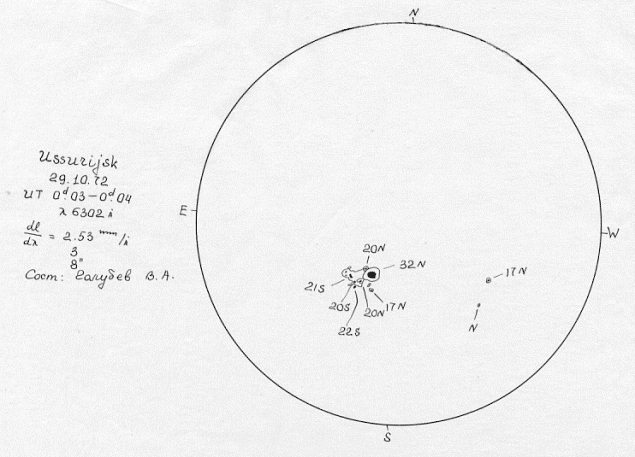 N
Ussurijsk
29.10.72
UT 0ᵈ.03-0ᵈ.04
λ 6302 Å
dl/dλ = 2.53 mm/Å
3
8"
Сост: Голубев В.А.
E
W
20N
32N
17N
21S
20S
20N
17N
22S
N
S